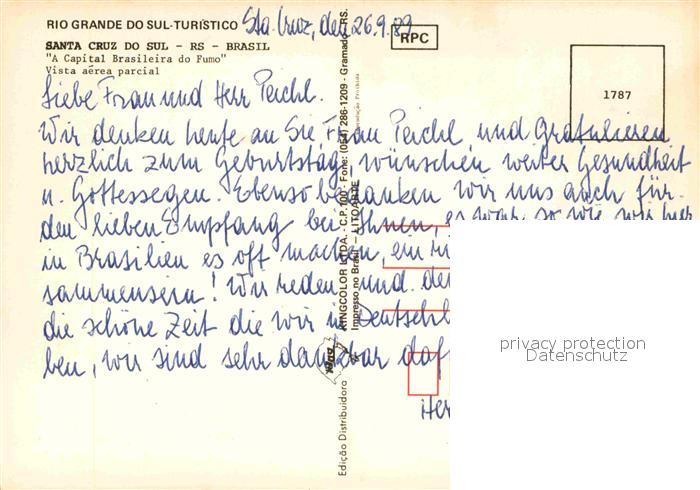 RIO GRANDE DO SUL-TURÍSTICO
Sta. Cruz, den 26.9.89
RPC
SANTA CRUZ DO SUL - RS - BRASIL
"A Capital Brasileira do Fumo"
Vista aérea parcial
1787
Liebe Frau und Herr Peichl.
Wir denken heute an Sie Frau Peichl und Gratulieren
herzlich zum Geburtstag, wünschen weiter Gesundheit
u. Gottessegen. Ebenso bedanken wir uns auch für
den lieben Empfang bei Ihnen, es war so wie wir hier
in Brasilien es oft machen, ein
sammensein! Wir reden und
die schöne Zeit die wir in
ben, wir sind sehr dankbar
Her
Edição Distribuidora KINGCOLOR LTDA. - C.P. 100 - Fone: (054) 286-1209 - Gramado - RS.
Impresso no Brasil - LITOARTE
privacy protection
Datenschutz